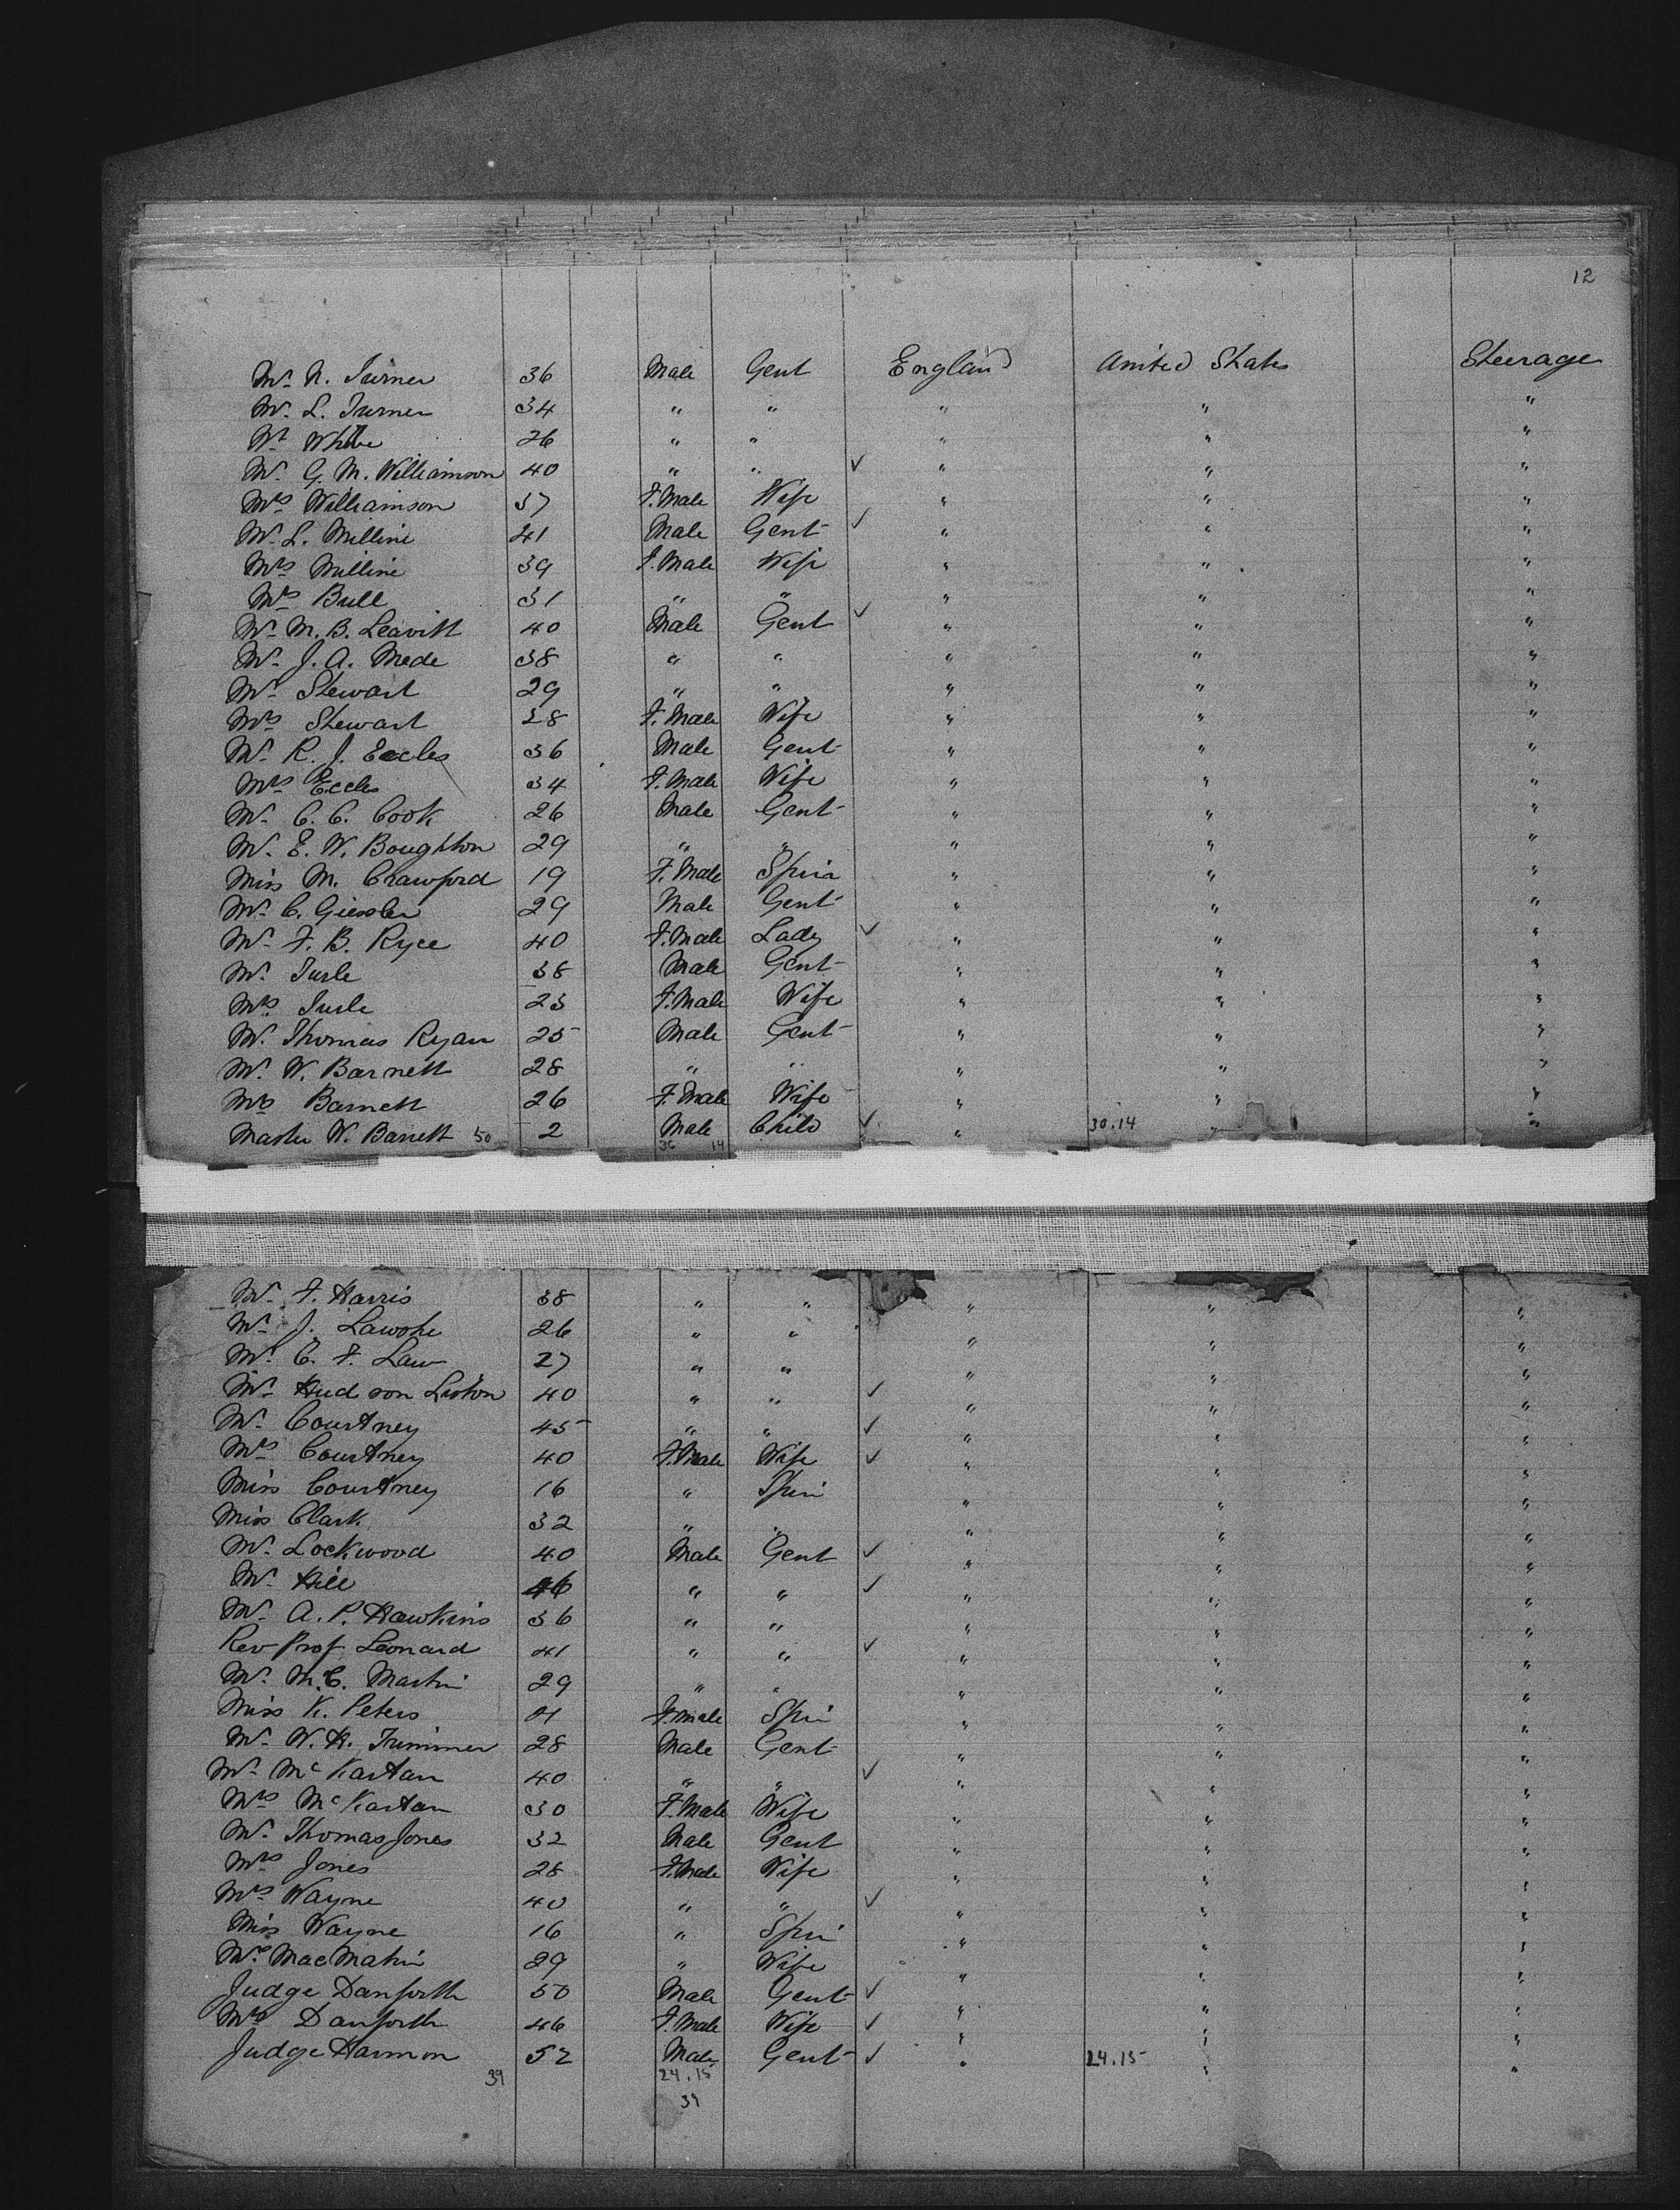 12
Mr. N. Turner 36 Male Gent England United States Steerage
Mr. L. Turner 34 " " " " "
Mr. White 26 " " " " "
Mr. G. M. Williamson 40 " " ✓ " " "
Mrs Williamson 37 F. Male Wife " " "
Mr. L. Milline 41 Male Gent ✓ " " "
Mrs Milline 39 F. Male Wife " " "
Mrs Bull 31 " " " " "
Mr. M. B. Leavitt 40 Male Gent ✓ " " "
Mr. J. A. Mede 38 " " " " "
Mr. Stewart 29 " " " " "
Mrs Stewart 28 F. Male Wife " " "
Mr. R. J. Eccles 36 Male Gent " " "
Mrs Eccles 34 F. Male Wife " " "
Mr. C. C. Cook 26 Male Gent " " "
Mr. E. W. Boughton 29 " " " " "
Miss M. Crawford 19 F. Male Spin " " "
Mr. C. Giessler 29 Male Gent " " "
Mr. F. B. Ryce 40 F. Male Lady ✓ " " "
Mr. Turle 38 Male Gent " " "
Mrs Turle 23 F. Male Wife " " "
Mr. Thomas Ryan 25 Male Gent " " "
Mr. W. Barnett 28 " " " " "
Mrs Barnett 26 F. Male Wife " " "
Master W. Barnett 50 2 Male Child ✓ " 30.14 " "
36 14
Mr. F. Harris 38 " " " " "
Mr. J. 26 " " " " "
Mr. C. F. Law 27 " " " " "
Mr. Hudson Liston 40 " " ✓ " " "
Mr. Courtney 45 " " ✓ " " "
Mrs Courtney 40 F. Male Wife ✓ " " "
Miss Courtney 16 " Spin " " "
Miss Clark 32 " " " " "
Mr. Lockwood 40 Male Gent ✓ " " "
Mr. Hill 46 " " ✓ " " "
Mr. A. P. Hawkins 36 " " " " "
Rev Prof Leonard 41 " " ✓ " " "
Mr. M. C. Martin 29 " " " " "
Miss K. Peters F. male Spin " " "
Mr. W. H. Trimmer 28 Male Gent " " "
Mr. McKartan 40 " " ✓ " " "
Mrs McKartan 30 F. Male Wife " " "
Mr. Thomas Jones 32 Male Gent " " "
Mrs Jones 28 F. Male Wife " " "
Mrs Wayne 40 " " ✓ " " "
Miss Wayne 16 " Spin " " "
Mrs MacMahin 29 " Wife " " "
Judge Danforth 50 Male Gent ✓ " " "
Mrs Danforth 46 F. Male Wife ✓ " " "
Judge Harmon 52 Male Gent ✓ " 24.15 " "
39 24.15
39